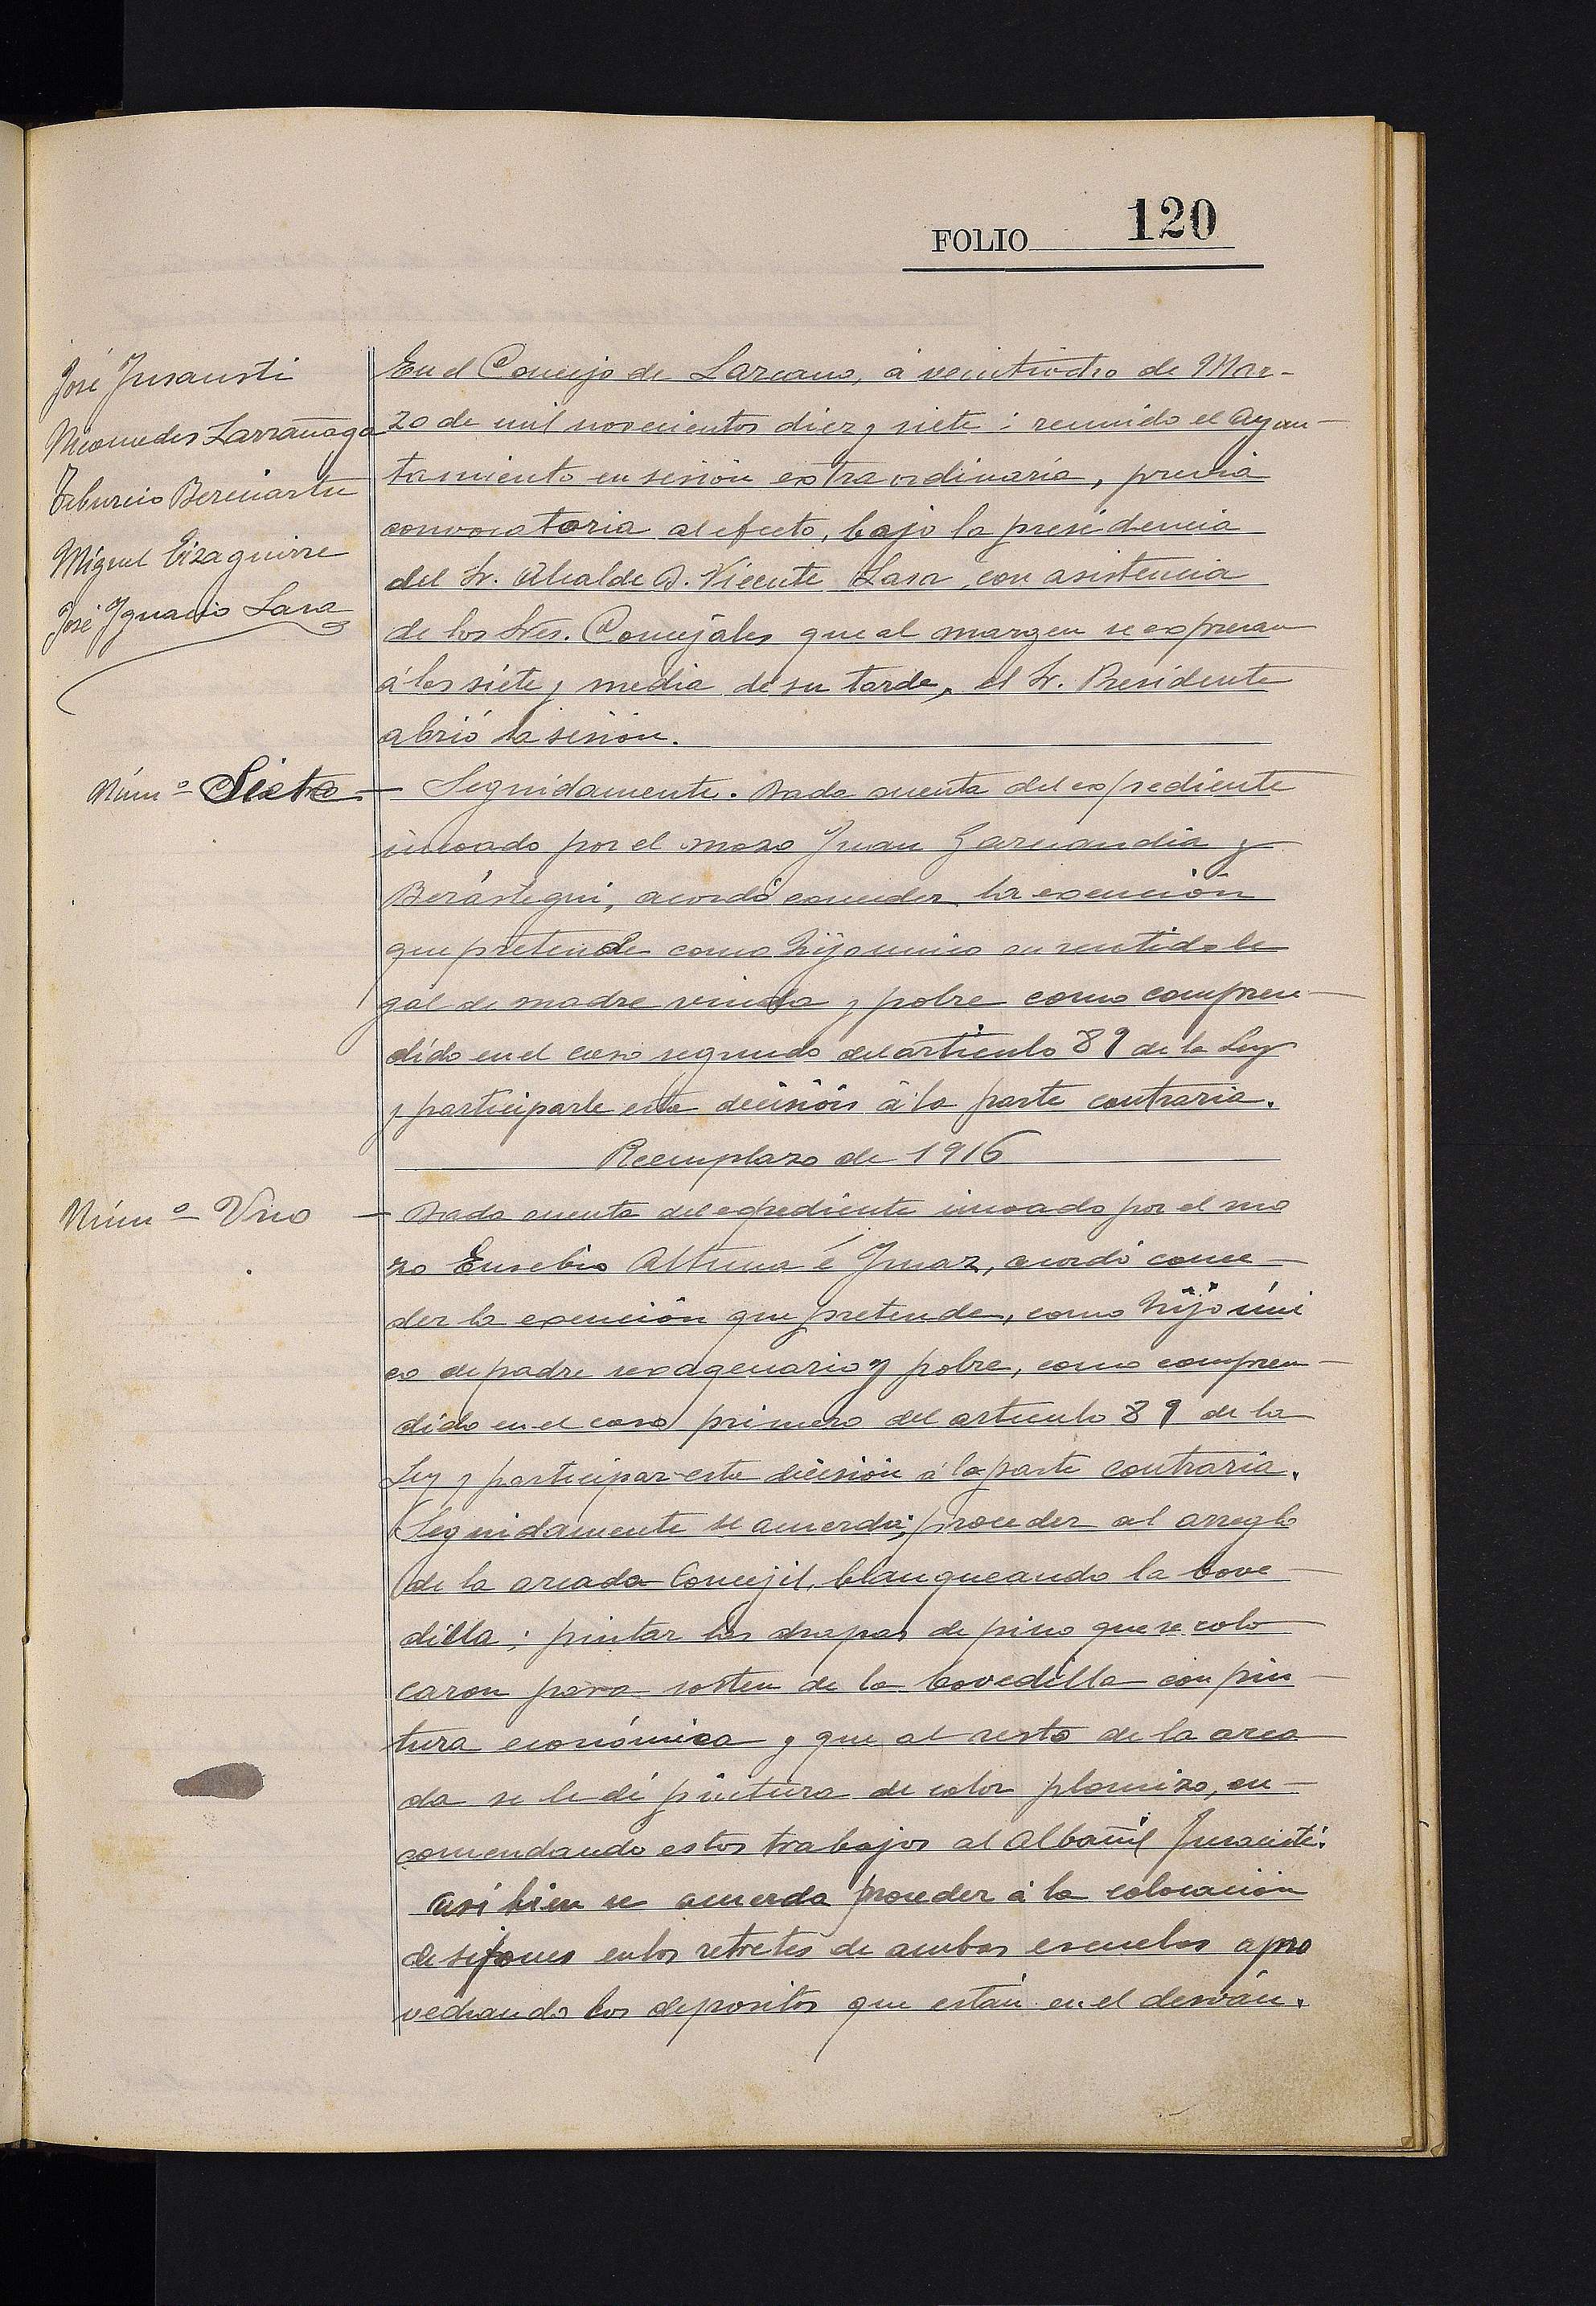 FOLIO 120
José Jusausti
Nicomedes Larrañaga
Tiburcio Bereciartu
Miguel Eizaguirre
José Ignacio Lasa
En el Concejo de Lazcano, á veintiocho de Mar-
zo de mil novecientos diez y siete: reunido el Ayun-
tamiento en sesión extraordinaria, previa
convocatoria al efecto, bajo la presidencia
del Sr. Alcalde D. Vicente Lasa, con asistencia
de los Sres. Concejales que al margen se expresan
á las siete y media de su tarde, el Sr. Presidente
abrió la sesión.
Núm.º Siete — Seguidamente. Dada cuenta del expediente
incoado por el mozo Juan Garmendia y
Berástegui, acordó conceder la exención
que pretende como hijo unico en sentido le
gal de madre viuda y pobre como compren-
dido en el caso segundo del artículo 89 de la Ley
y participarle esta decisión á la parte contraria.
Reemplazo de 1916
Núm.º Uno — Dada cuenta del expediente incoado por el mo
zo Eusebio Altuna é Imaz, acordó conce-
der la exención que pretende, como hijo úni
co de padre sexagenario y pobre, como compren-
dido en el caso primero del articulo 89 de la
Ley y participar esta decisión á la parte contraria.
Seguidamente se acuerda; proceder al arreglo
de la arcada Concejil, blanqueando la bove-
dilla; pintar las chapas de pino que se colo
caron para sosten de la bovedilla con pin-
tura económica y que al resto de la arca
da se le dé pintura de color plomizo, en-
comendando estos trabajos al Albañil Jusausti.
Así bien se acuerda proceder á la colocación
de sifones en los retretes de ambas escuelas apro
vechando los depositos que están en el desván.